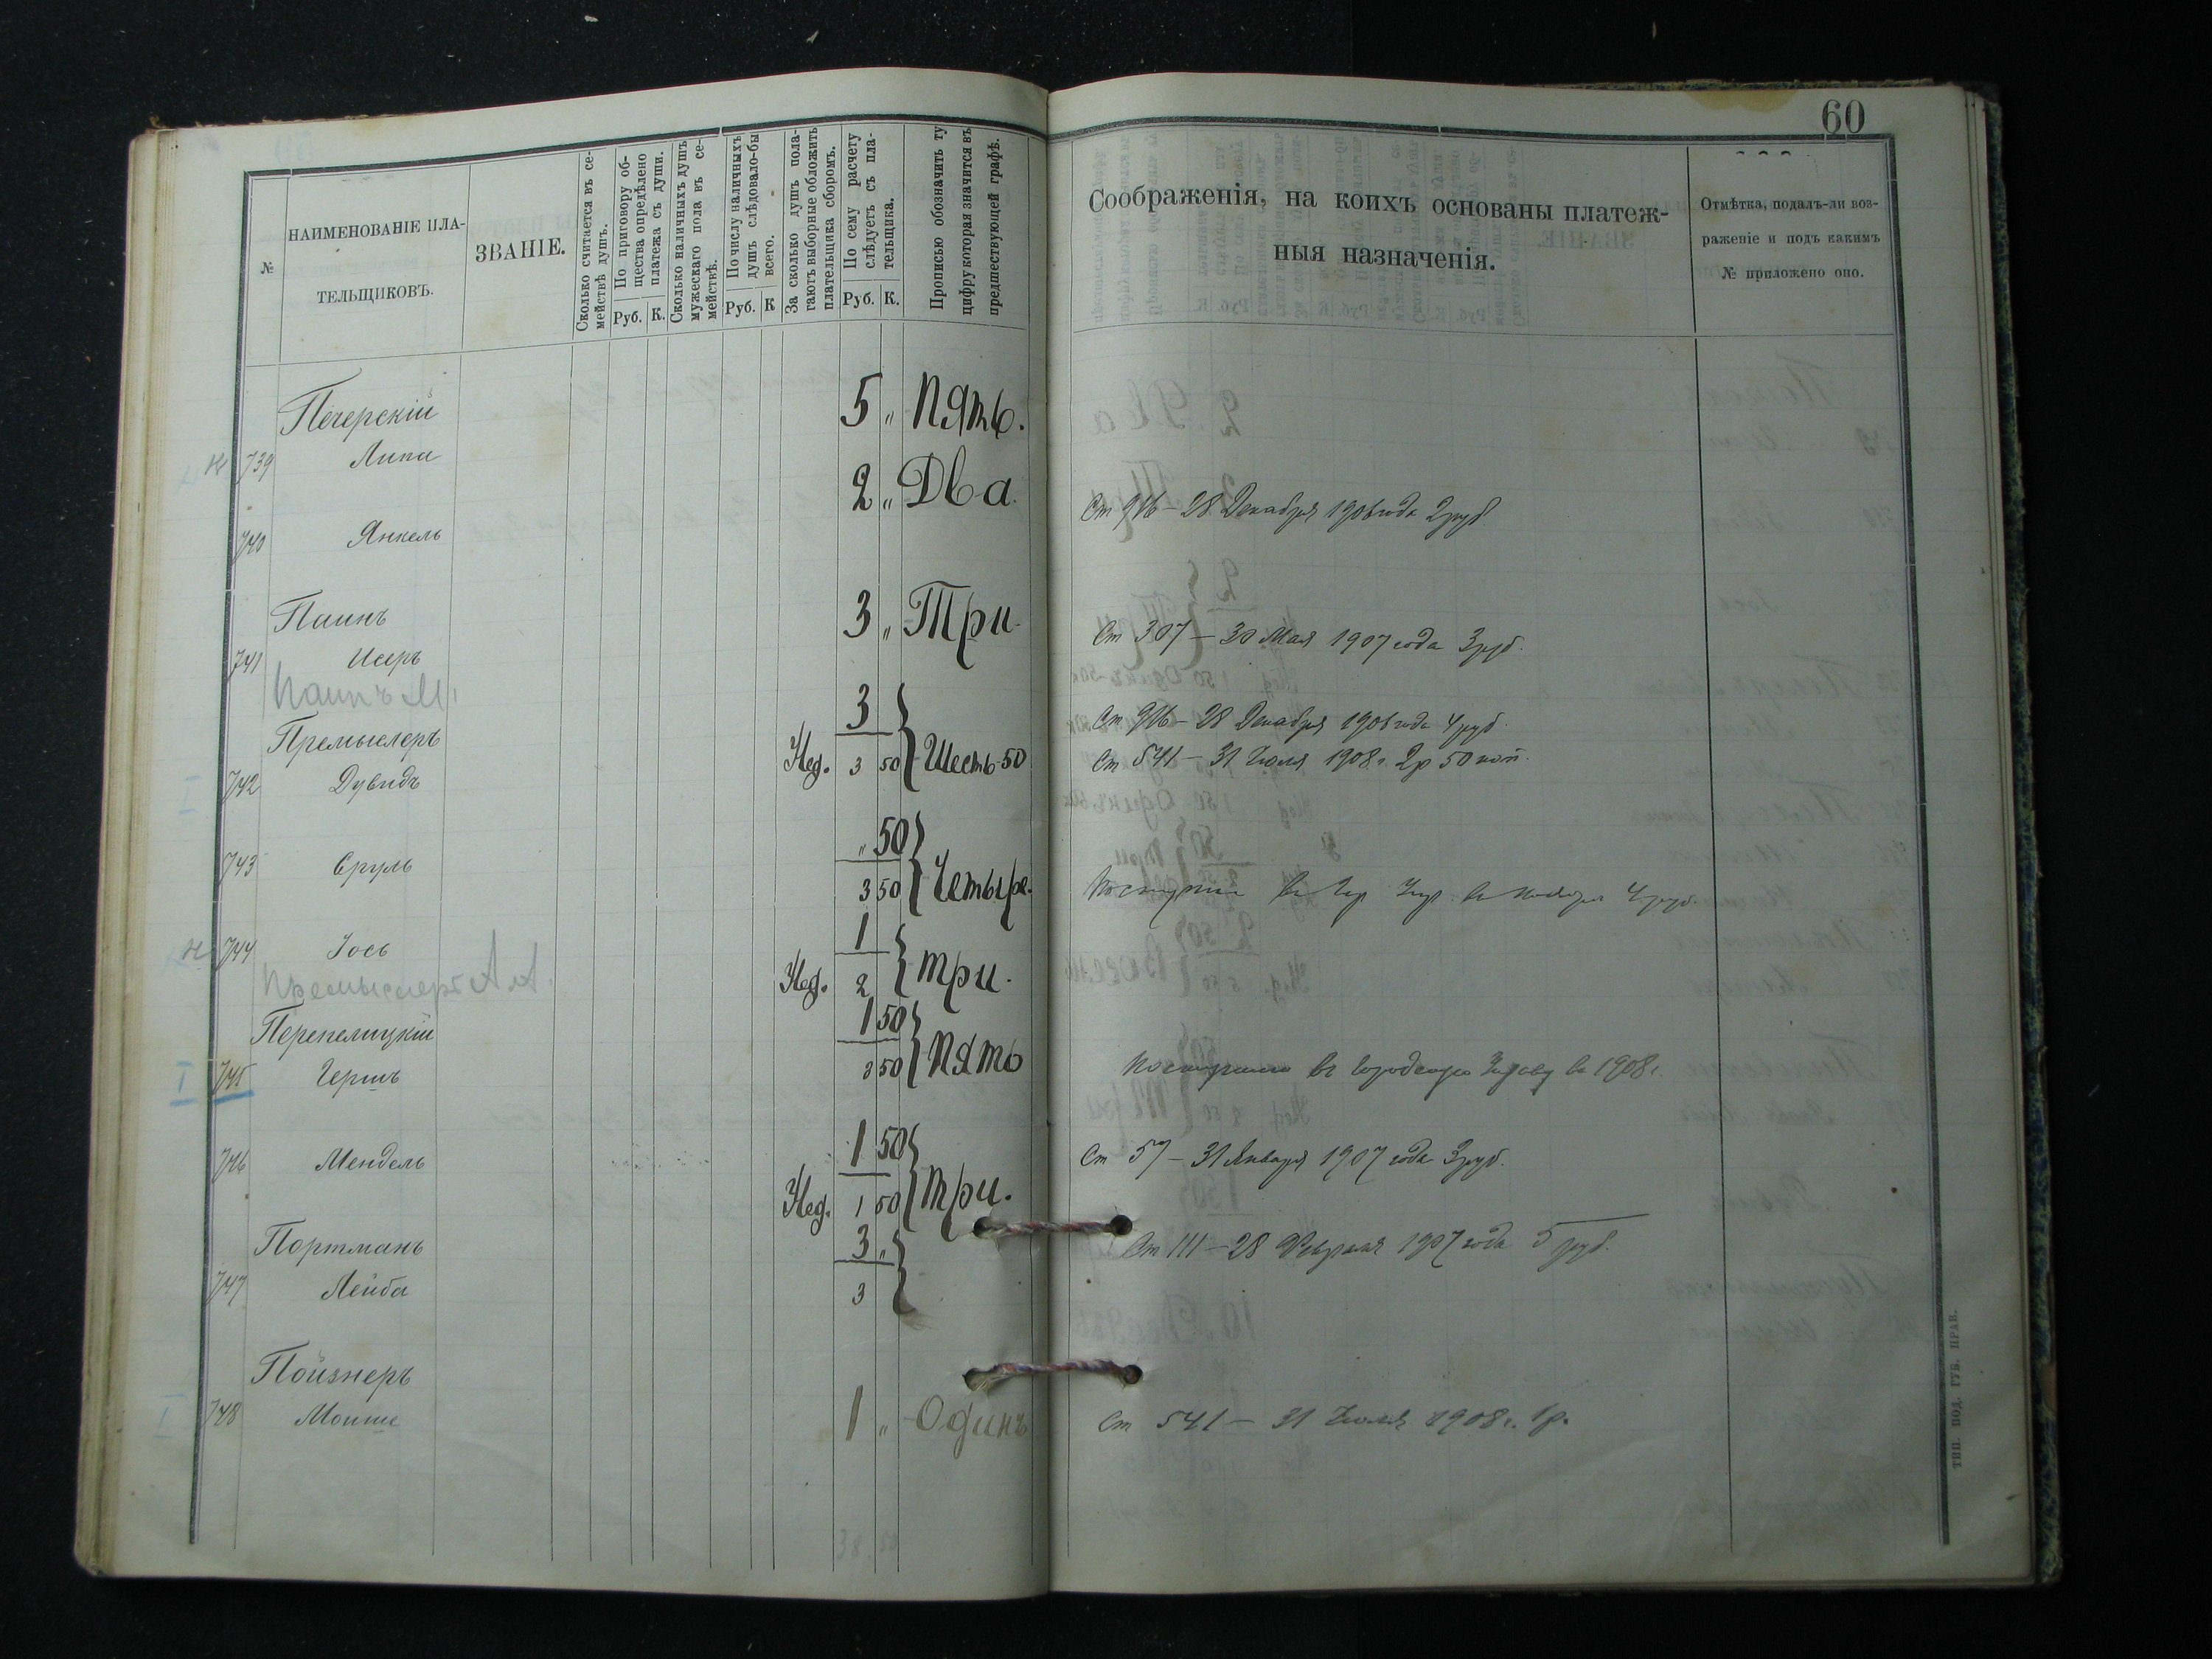 60
№
НАИМЕНОВАНІЕ ПЛА-
ТЕЛЬЩИКОВЪ.
ЗВАНІЕ.
Сколько считается въ се-
мействѣ душъ.
По приговору об-
щества опредѣлено
платежа съ души.
Руб. К.
Сколько наличныхъ душъ
мужескаго пола въ се-
мействѣ.
По числу наличныхъ
душъ слѣдовало-бы
всего.
Руб. К
За сколько душъ пола-
гаютъ выборные обложить
плательщика сборомъ.
По сему расчету
слѣдуетъ съ пла-
тельщика.
Руб. К.
Прописью обозначить ту
цифру которая значится въ
предшествующей графѣ.
Соображенія, на коихъ основаны платеж-
ныя назначенія.
Отмѣтка, подалъ-ли воз-
раженіе и подъ какимъ
№ приложено оно.
Печерскій 5 " Пять.
739 Липа
2 " Два.
Ст 916 – 28 Декабря 1906 года 2 руб
740 Янкель
Паинъ 3 " Три.
741 Исеръ
Ст 307 – 30 Мая 1907 года 3 руб.
Паинъ М
3
Ст 916 – 28 Декабря 1906 года 4 руб.
Премыслеръ
Нед. 3 50 Шесть 50
Ст 541 – 31 Іюля 1908 г. 2 р 50 коп.
742 Дувидъ
" 50
743 Сруль
3 50 Четыре.
4 руб.
744 Іось
1
Нед. 2 три.
Премыслеръ А А.
1 50
Перепелицкій
3 50 Пять
745 Гершъ
Поступило въ городскую Управу въ 1908 г.
1 50
746 Мендель
Ст 57 – 31 Января 1907 года 3 руб.
Нед. 1 50 три.
Портманъ 3 "
Ст 111 – 28 Февраля 1907 года 5 руб.
747 Лейба
3
Пойзнеръ
748 Мошко 1 " Одинъ
Ст 541 – 31 Іюля 1908 г. 1 р.
38 50
ТИП. ПОД. ГУБ. ПРАВ.